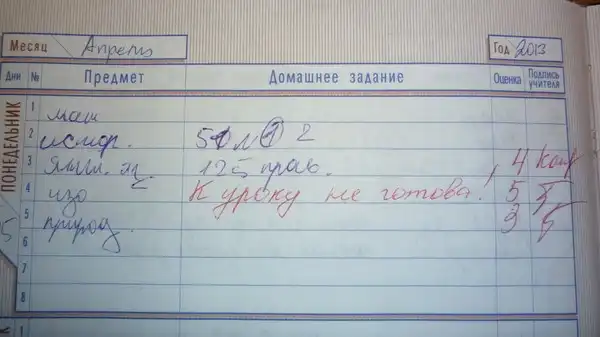 Месяц Апрель Год 2013
Дни № Предмет Домашнее задание Оценка Подпись учителя
ПОНЕДЕЛЬНИК
1 мат
2 истор. 2
3 Англ. яз. 125 прав. 4
4 изо К уроку не готова! 5
5 природ. 3
6
7
8
1